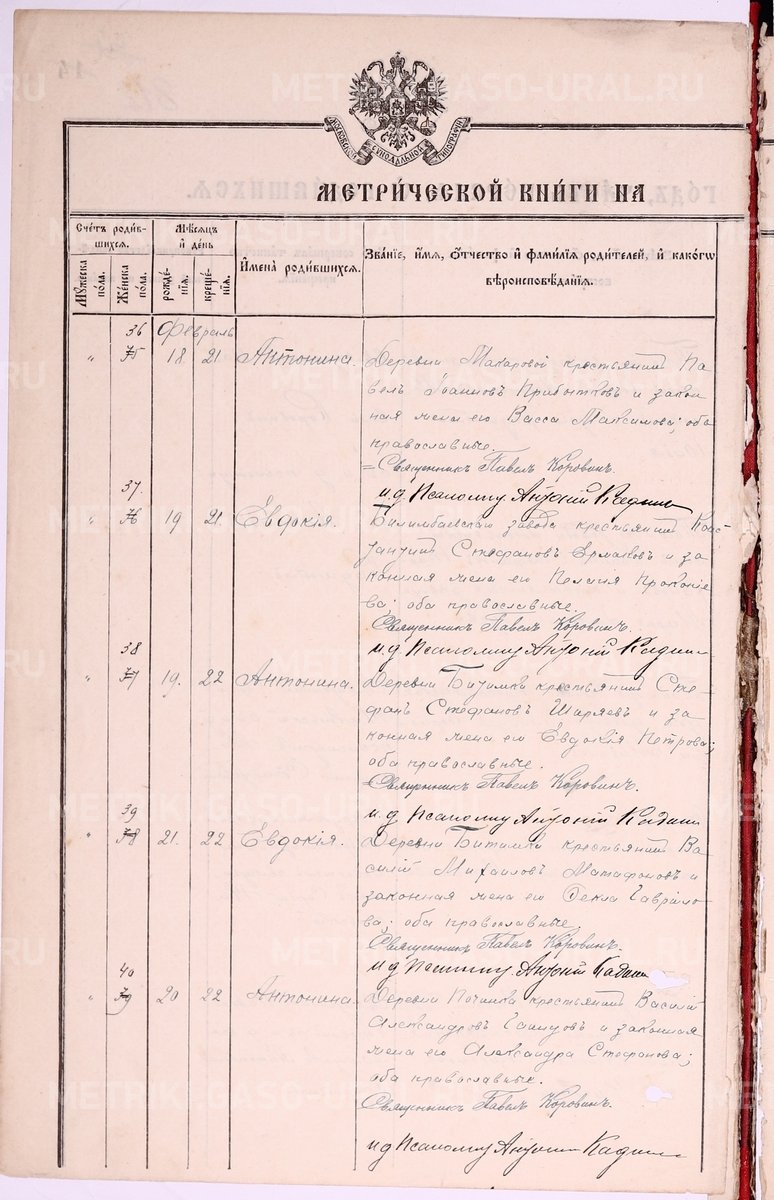 METRIK.GASO-URAL.RU
МОСКОВСКОЙ СѴНОДАЛЬНОЙ ТИПОГРАФІИ
МЕТРИ́ЧЕСКОЙ КНИ́ГИ НА
Сче́тъ роди́в-
шихся.
Му́жеска по́ла.
Же́нска по́ла.
Мѣ́сяцъ
и҆ де́нь
рожде́-
нїя.
креще́-
нїя.
И҆мена̀ роди́вшихся.
Зва́нїе, и҆́мя, ѻ҆́тчество и҆ фами́лїя роди́телей, и҆ како́гѡ
вѣроисповѣ́данїя.
36 Февраль
" 35 18 21 Антонина. Деревни Макаровой крестьянинъ Па-
велъ Іоанновъ Прибытковъ и закон-
ная жена его Васса Максимова; оба
православные.
=Священникъ Павелъ Коровинъ.
и.д. Псаломщ Антоній Кадинъ
37.
" 36 19 21 Евдокія. Билимбаевскаго завода крестьянинъ Конс-
тантинъ Стефановъ Ермаковъ и за
конная жена его Пелагія Прокопіе
ва; оба православные.
Священникъ Павелъ Коровинъ.
и.д. Псаломщ Антоній Кадинъ
38
" 37 19. 22 Антонина. Деревни Битимки крестьянинъ Сте-
фанъ Стефановъ Ширяевъ и за
конная жена его Евдокія Петрова;
оба православные.
=Священникъ Павелъ Коровинъ.
и.д. Псаломщ Антоній Кадинъ
39
" 38 21. 22 Евдокія. Деревни Битимки крестьянинъ Ва
силій Михаиловъ Матафоновъ и
законная жена его Фекла Гаврило
ва; оба православные
Священникъ Павелъ Коровинъ.
и.д. Псаломщ Антоній Кадинъ
40
" 39 20 22 Антонина. Деревни Починка крестьянинъ Василій
Александровъ и законная
жена его Александра Стефанова;
оба православные.
Священникъ Павелъ Коровинъ.
и.д. Псаломщ Антоній Кадинъ